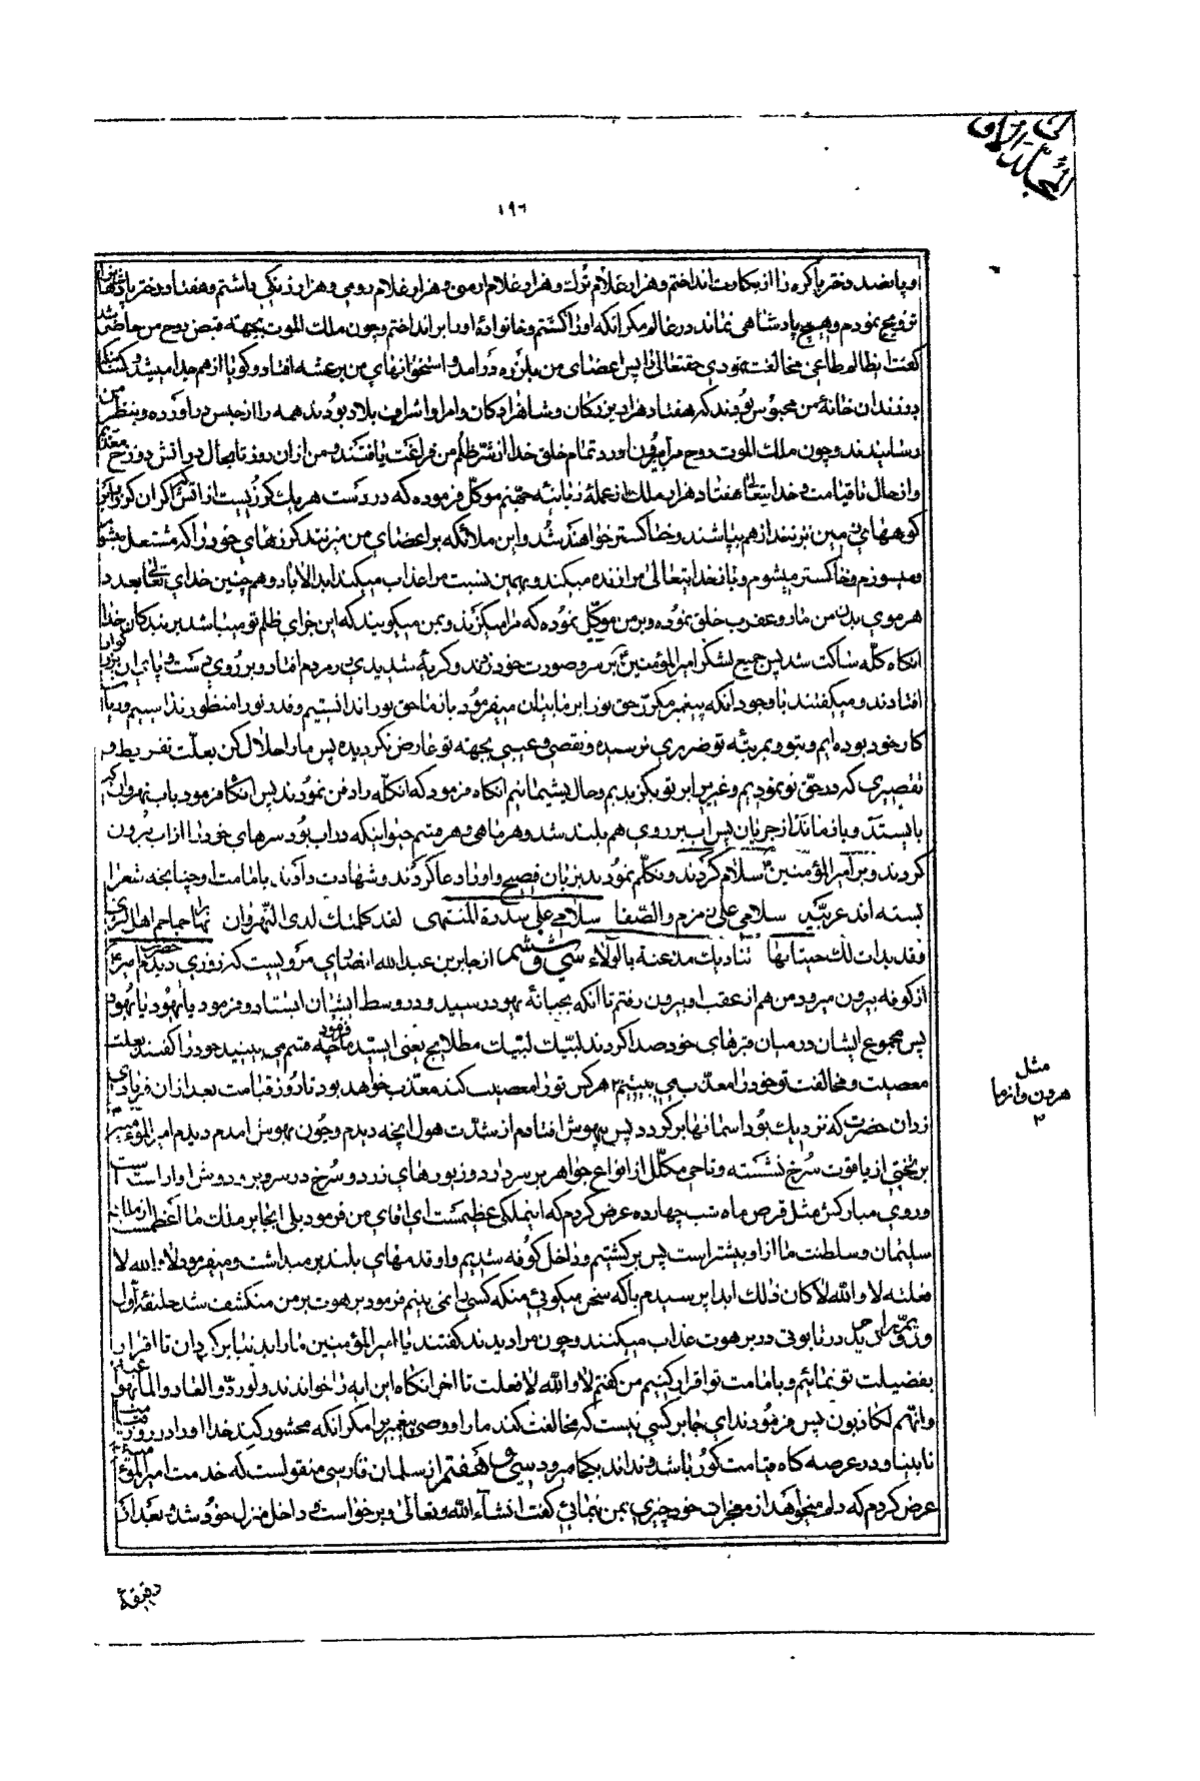 المجلّد الاوّل
١٩٦
و پانصد دختر باکره را از بکارت انداختم و هزار غلام ترك و هزار غلام ارمنی و هزار غلام رومی و هزار زنگی داشتم و هفتاد دختر پادشاهانرا
تزویج نمودم و هیچ پادشاهی نماند در عالم مگر انکه او را کشتم و خانواده او را بر انداختم و چون ملك الموت بجهته قبض روح من حاضر شد
گفت ای ظالم طاغی مخالفت نمودی حقتعالی را پس اعضای من بلرزه درامد و استخوانهای من برعشه افتاد و گویا از هم جدا میشد و کسانیکه
در زندان خانهٔ من محبوس بودند که هفتاد هزار بزرگان و شاهزادگان و امرا و اشراف بلاد بودند همه را از حبس دراورده و بنظر من
رسانیدند و چون ملك الموت روح مرا بیرون اورد تمام خلق خدا از شرّ ظلم من فراغت یافتند و من از ان روز تا بحال در اتش دوزخ معذبم
و از حال تا قیامت و خدایتعالی هفتاد هزار ملك از عملهٔ زبانیه جهنم موکل فرموده که در دست هر یك گرزیست از اتش که اگر ان گرز را بر
کوههای زمین بزنند از هم بپاشند و خاکستر خواهند شد و این ملائکه بر اعضای من میزنند گرزهای خود را که مشتعل میشود
و میسوزم و خاکستر میشوم و باز خدایتعالی مرا زنده میکند و بهمین نسبت مرا عذاب میکنند ابد الاباد و هم چنین خدای تعالی بعدد
هر موی بدن من مار و عقرب خلق نموده و بر من موکّل نموده که مرا میگزند و بمن میگویند که این جزای ظلم تو میباشد بر بندگان خدا
انگاه کلّه ساکت شد پس جمیع لشکر امیر المؤمنین بر سر و صورت خود زدند و گریهٔ شدیدی در مردم افتاد و بر روی دست و پای ان بزرگوار
افتادند و میگفتند با وجود انکه پیغمبر مکرّر حق تو را بر ما بیان میفرمود باز ما حق تو را ندانستیم و قدر تو را منظور نداشتیم
کار خود بوده ایم و بتو و بمرتبه تو ضرری نرسیده و نقصی و عیبی بجهته تو عارض نگردیده پس ما را حلال کن بعلّت تفریط و
تقصیری که در حقّ تو نمودیم و غیر را بر تو بگزیدیم و حال پشیمانیم انگاه فرمود که انکلّه را دفن نمودند پس انگاه فرمود باب نهروان که
بایستد و باز ماند از جریان پس اب بر روی هم بلند شد و هر ماهی و هر قسم حیوانیکه در اب بود سرهای خود را از اب بیرون
کردند و بر امیر المؤمنین سلام کردند و تکلّم نمودند بزبان فصیح و او را دعا کردند و شهادت دادند بامامت او چنانچه شعرا
بسته اند عربیّة سلامی علی زمزم والصّفا سلامی علی سدرة المنتهی لقد کلمتك لدی النّهروان نهارا جماجم اهل الثری
فقد بدات لك حیتانها تنادیك مذعنة بالولاء سی و ششم از جابر بن عبد الله انصاری مرویست که روزی دیدم حضرت امیر
از کوفه بیرون میرود من هم از عقب او بیرون رفتم تا انکه بجبانهٔ یهود رسید و در وسط ایشان ایستاد و فرمود یا یهود یا یهود
پس مجموع ایشان در میان قبرهای خود صدا کردند لبّیك لبّیك مطلاع یعنی ای سید ما فرمود چه قسم می بینید خود را گفتند بعلت
معصیت و مخالفت تو خود را معذّب می بینیم هر کس تو را معصیت کند معذّب خواهد بود تا روز قیامت بعد از ان فریادی
زد ان حضرت که نزدیك بود اسمانها برگردد پس بیهوش افتادم از شدّت هول انچه دیدم و چون بهوش امدم دیدم امیر المؤمنین
بر تختی از یاقوت سرخ نشسته و تاجی مکلّل از انواع جواهر بر سر دارد و زیورهای زرد و سرخ در سر و بر و دوش او اراسته است
و روی مبارکش مثل قرص ماه شب چهارده عرض کردم که اینملکی عظیمست ای اقای من فرمود بلی ایجابر ملك ما اعظمست از ملك
سلیمان و سلطنت ما از او بیشتر است پس برگشتیم و داخل کوفه شدیم و او قدمهای بلند بر میداشت و میفرمود لا والله لا
فعلته لا والله لا کان ذلك ابدا پرسیدم با که سخن میگوئی منکه کسی را نمی بینم فرمود برهوت بر من منکشف شد خلیفهٔ اول
و دویّم را دیدم در تابوتی در برهوت عذاب میکنند و چون مرا دیدند گفتند یا امیر المؤمنین ما را بدنیا برگردان تا اقرار
بفضیلت تو نمائیم و بامامت تو اقرار کنیم من گفتم لا والله لا فعلت تا اخر انگاه این ایه را خواندند ولو ردّوا لعادوا لما نهوا عنه
وانّهم لکاذبون پس فرمودند ای جابر کسی نیست که مخالفت کند ما را و وصی پیغمبر را مگر انکه محشور کند خدا او را در روز قیامت
نابینا و در عرصه گاه قیامت کور باشد و نداند بکجا میرود سی و هفتم از سلمان فارسی منقولست که خدمت امیر المؤمنین
عرض کردم که دلم میخواهد از معجزات خود چیزی بمن نمائی گفت انشآء الله تعالی و برخواست و داخل منزل خود شد و بعد از
مثل
هرون و ازما
٣
دقیقهٔ